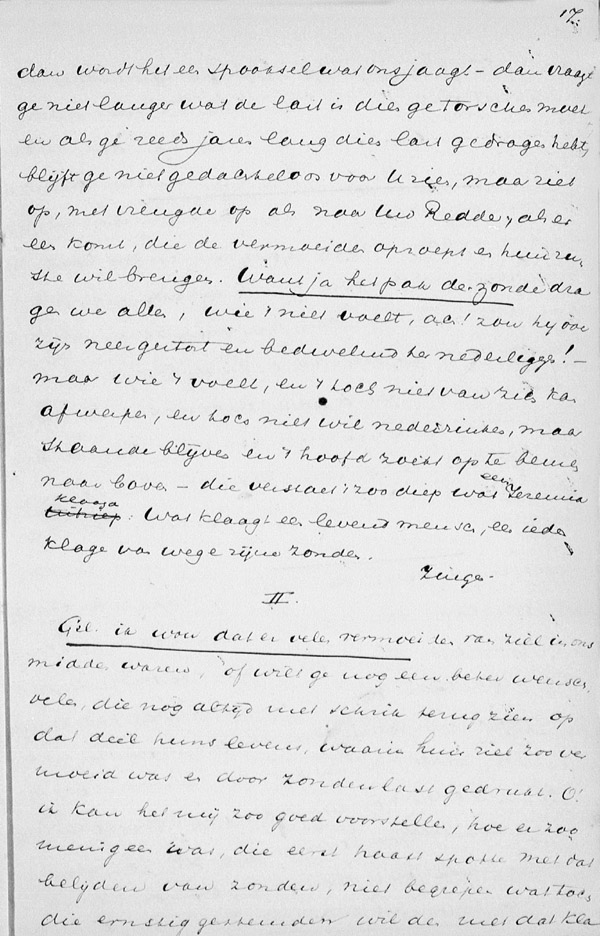 17.
dan wordt het een spooksel wat ons jaagt – dan vraagt
ge niet langer wat de last is dien ge torschen moet
en als ge reeds jaren lang dien last gedragen hebt,
blijft ge niet gedachteloos voor U zien, maar ziet
op, met vreugde op als naar Uw Redder, als er
een komt, die de vermoeiden oproept en hun ru
ste wil brengen. Want ja het pak der zonde dra
gen we allen, wie 't niet voelt, ach! zou hij
zijn neergestort en bedwelmd ter nederliggen! –
maar wie 't voelt, en 't toch niet van zich kan
afwerpen, en toch niet wil nederzinken, maar
staande blijven en 't hoofd zoekt op te beuren
naar boven – die verstaat 't zoo diep wat een Jeremia
klaagt: Wat klaagt een levend mensch, een ieder
klage van wege zijne zonden.
Zingen.
II.
Gel. ik wou dat er velen vermoeiden van ziel in ons
midden waren, of wilt ge nog een beter wensch,
velen, die nog altijd met schrik terug zien op
dat deel huns levens, waarin hun ziel zoo ver
moeid was en door zondenlast gedrukt. O!
ik kan het mij zoo goed voorstellen, hoe er zoo
menigeen was, die eerst haast spotte met dat
belijden van zonden, niet begreep wat toch
die ernstig gestemden wilden met dat kla